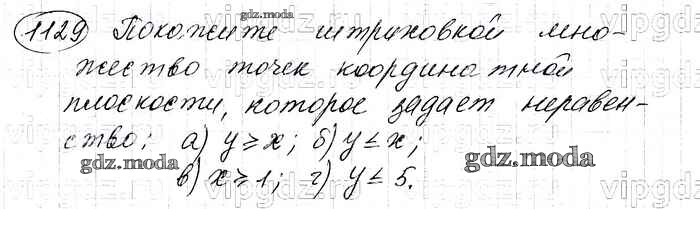 1129 Покажите штриховкой мно-
жество точек координатной
плоскости, которое задает неравен-
ство: а) y ≥ x; б) y ≤ x;
в) x ≥ 1; г) y ≤ 5.
gdz.moda
gdz.moda
gdz.moda
vipgdz
vipgdz
vipgdz
vipgdz